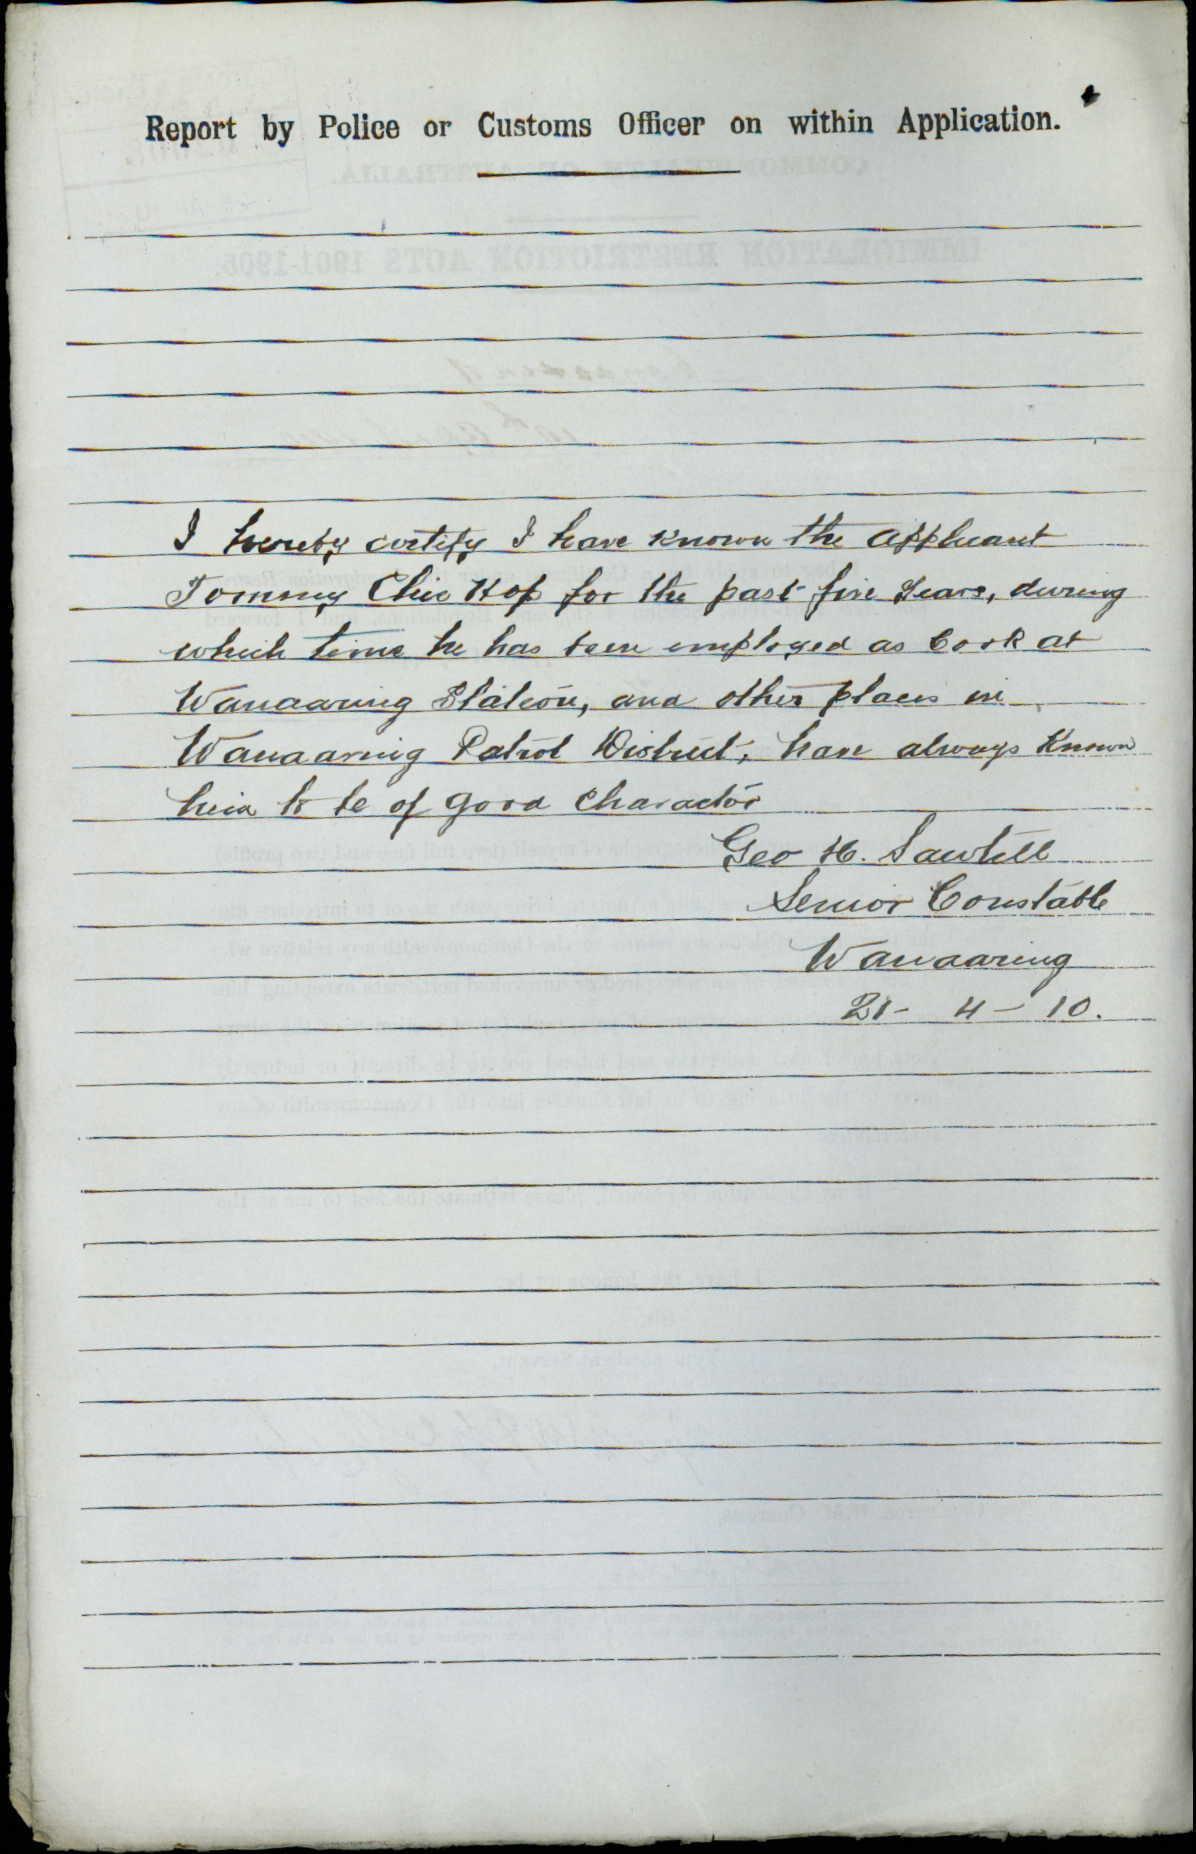 Report by Police or Customs Officer on within Application.
I hereby certify I have known the applicant
Tommy Chie Hop for the past five years, during
which time he has been employed as Cook at
Wanaaring Station, and other places in
Wanaaring Patrol District, have always known
him to be of good character
Geo H. Sawtell
Senior Constable
Wanaaring
21 - 4 - 10.